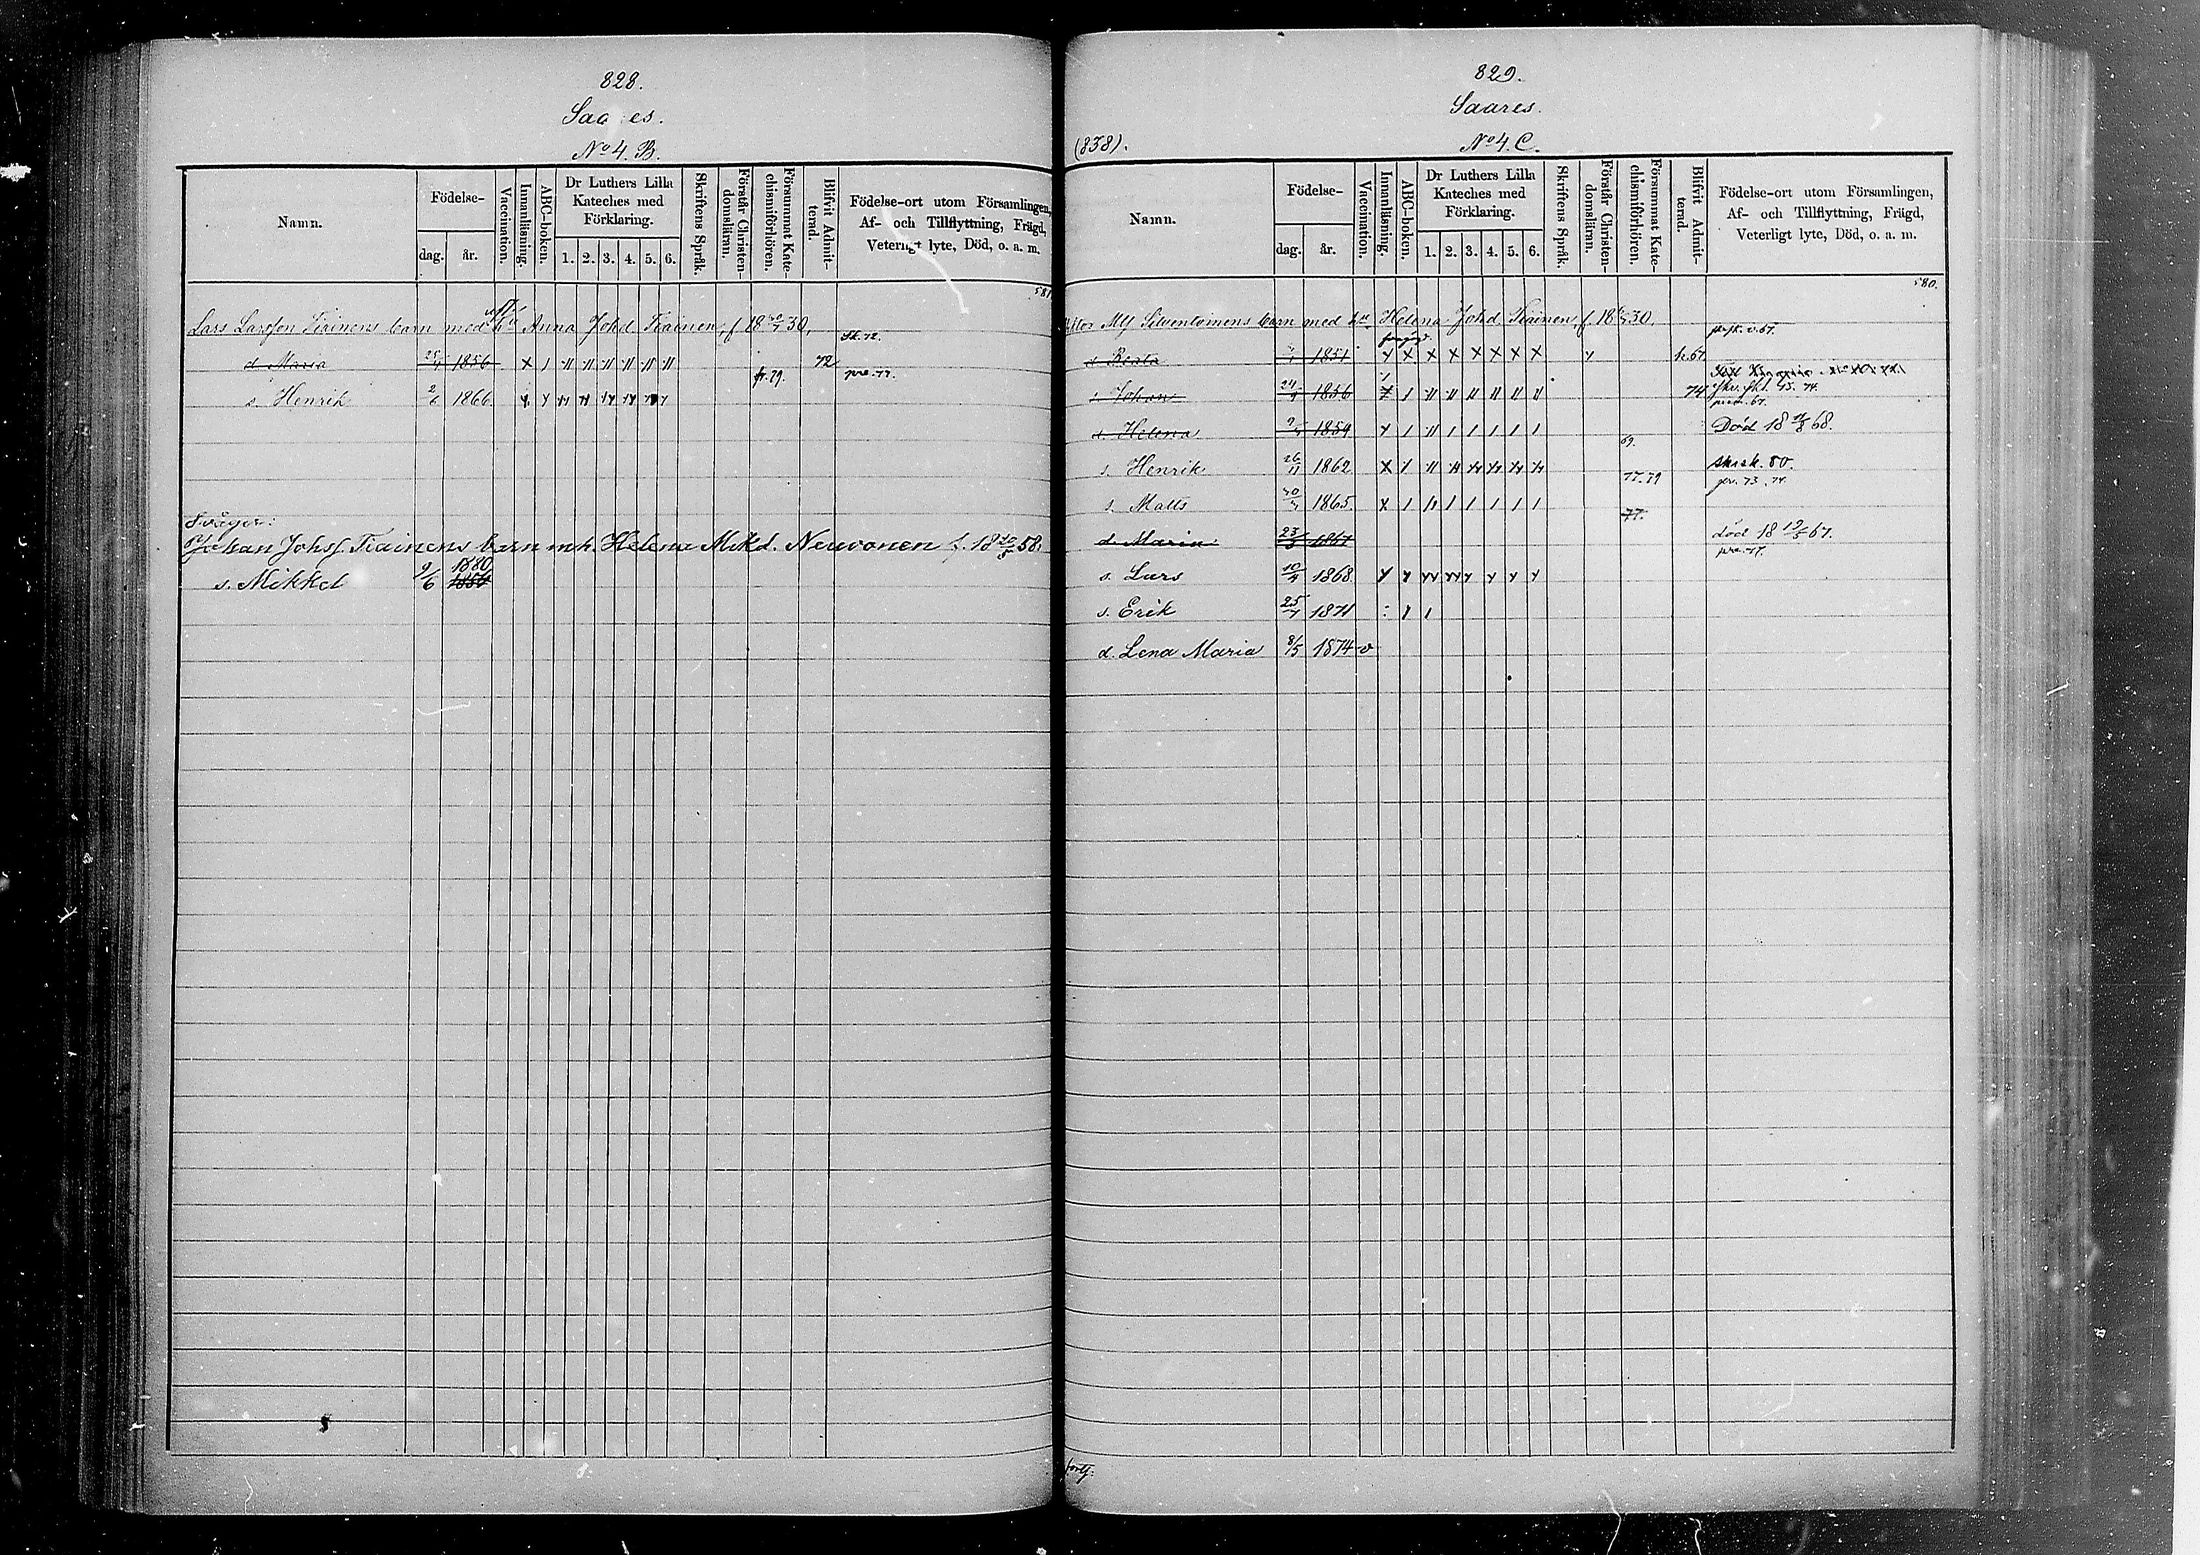 828.
Saares.
No 4. B.
Namn.
Födelse-
dag.
år.
Vaccination.
Innanläsning.
ABC-boken.
Dr Luthers Lilla
Kateches med
Förklaring.
1. 2. 3. 4. 5. 6.
Skriftens Språk.
Förstår Christen-
domsläran.
Försummat Kate-
chismiförhören.
Blifvit Admit-
terad.
Födelse-ort utom Församlingen,
Af- och Tillflyttning, Frägd,
Veterligt lyte, Död, o. a. m.
581
Lars Larsson Tiainens barn med hu Anna Johd. Tiainen f. 18 30.
sk. 72.
d. Maria 25/4 1856 72
fr. 79. pre. 77.
s. Henrik 2/6 1866
Svåger:
Johan Johss. Tiainens barn m.h. Helena Mikd. Neuvonen f. 18 58.
1880
s. Mikkel 9/6 1850
829.
Saares.
(838).
No 4. C.
Namn.
Födelse-
dag.
år.
Vaccination.
Innanläsning.
ABC-boken.
Dr Luthers Lilla
Kateches med
Förklaring.
1. 2. 3. 4. 5. 6.
Skriftens Språk.
Förstår Christen-
domsläran.
Försummat Kate-
chismiförhören.
Blifvit Admit-
terad.
Födelse-ort utom Församlingen,
Af- och Tillflyttning, Frägd,
Veterligt lyte, Död, o. a. m.
580.
Silventoinens barn med hu Helena Johd. Tiainen f. 18 30.
d. Beata 1851 h. 67
s. Johan 24/9 1856 74 75. 74.
pred. 67.
d. Helena 1859 Död 18 11/8 68.
69.
s. Henrik 26/11 1862 skrsk. 80.
77. 79 prv. 73. 74.
s. Matts 1865
77.
d. Maria 1867 död 18 19/5 67.
pre. 77.
s. Lars 10/4 1868
s. Erik 25/7 1871
d. Lena Maria 8/5 1874 v